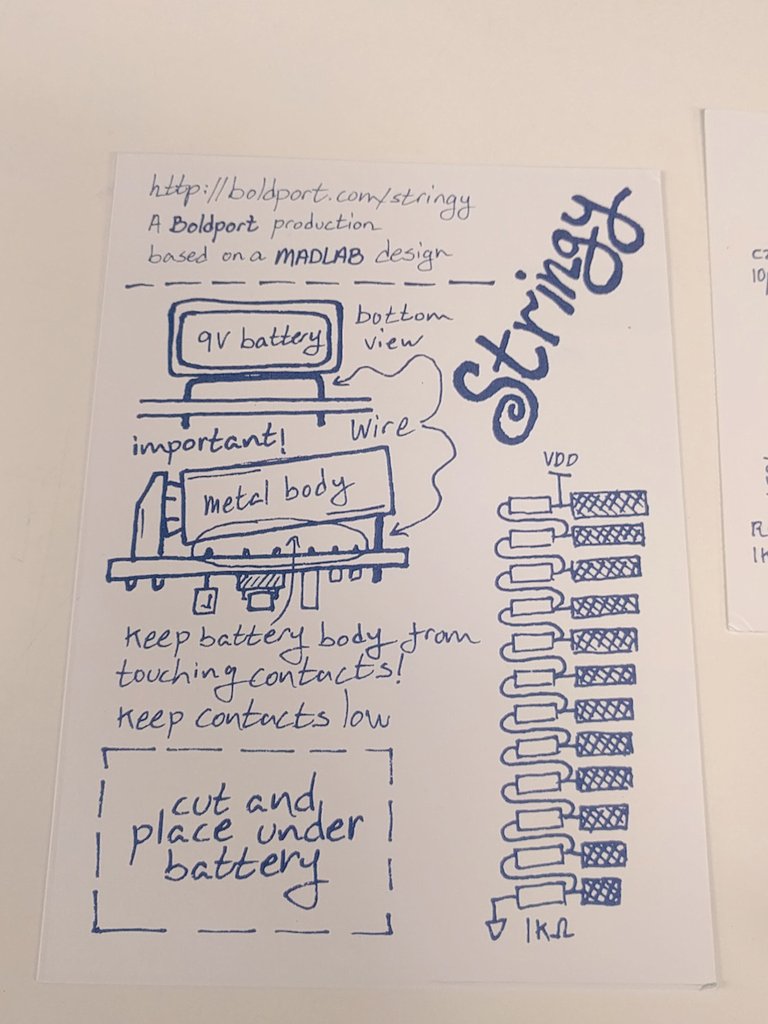 http://boldport.com/stringy
A Boldport production
based on a MADLAB design
Stringy
9V battery
bottom
view
important!
Wire
metal body
keep battery body from
touching contacts!
keep contacts low
cut and
place under
battery
VDD
1KΩ